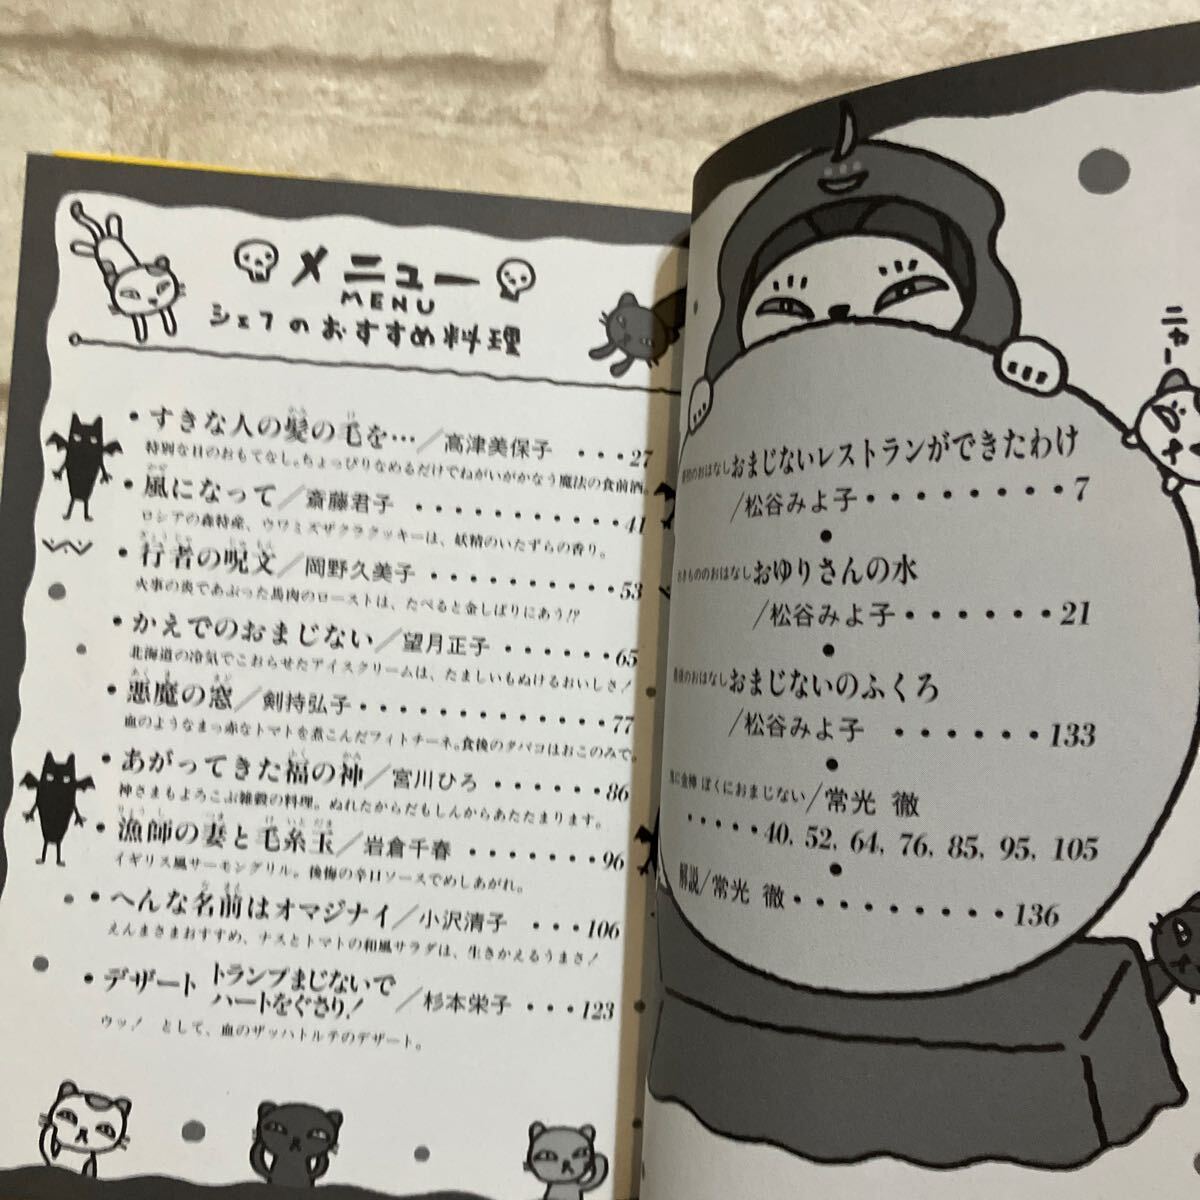 メニュー
MENU
シェフのおすすめ料理
・すきな人の髪の毛を…／高津美保子 ・・・27
特別な日のおもてなし。ちょっぴりなめるだけでねがいがかなう魔法の食前酒。
・風になって／斎藤君子 ・・・・・・・・・・・41
ロシアの森特産、ウワミズザクラクッキーは、妖精のいたずらの香り。
・行者の呪文／岡野久美子・・・・・・・・・・53
火事の炎であぶった馬肉のローストは、たべると金しばりにあう!?
・かえでのおまじない／望月正子・・・・・・65
北海道の冷気でこおらせたアイスクリームは、たましいもぬけるおいしさ！
・悪魔の窓／剣持弘子・・・・・・・・・・・・・77
血のようなまっ赤なトマトを煮こんだフィトチーネ。食後のタバコはおこのみで。
・あがってきた福の神／宮川ひろ・・・・・・86
神さまもよろこぶ雑穀の料理。ぬれたからだもしんからあたたまります。
・漁師の妻と毛糸玉／岩倉千春・・・・・・・96
イギリス風サーモングリル。後悔の辛口ソースでめしあがれ。
・へんな名前はオマジナイ／小沢清子 ・・・106
えんまさまおすすめ、ナスとトマトの和風サラダは、生きかえるうまさ！
・デザート トランプまじないで
ハートをぐさり！／杉本栄子・・・123
ウッ！ として、血のザッハトルテのデザート。
おはなし おまじないレストランができたわけ
／松谷みよ子・・・・・・・・7
おはなし おゆりさんの水
／松谷みよ子・・・・・・・21
おはなし おまじないのふくろ
／松谷みよ子 ・・・・・・133
ぼくにおまじない／常光 徹
・・・・・40, 52, 64, 76, 85, 95, 105
解説／常光 徹・・・・・・・・・136
ニャー